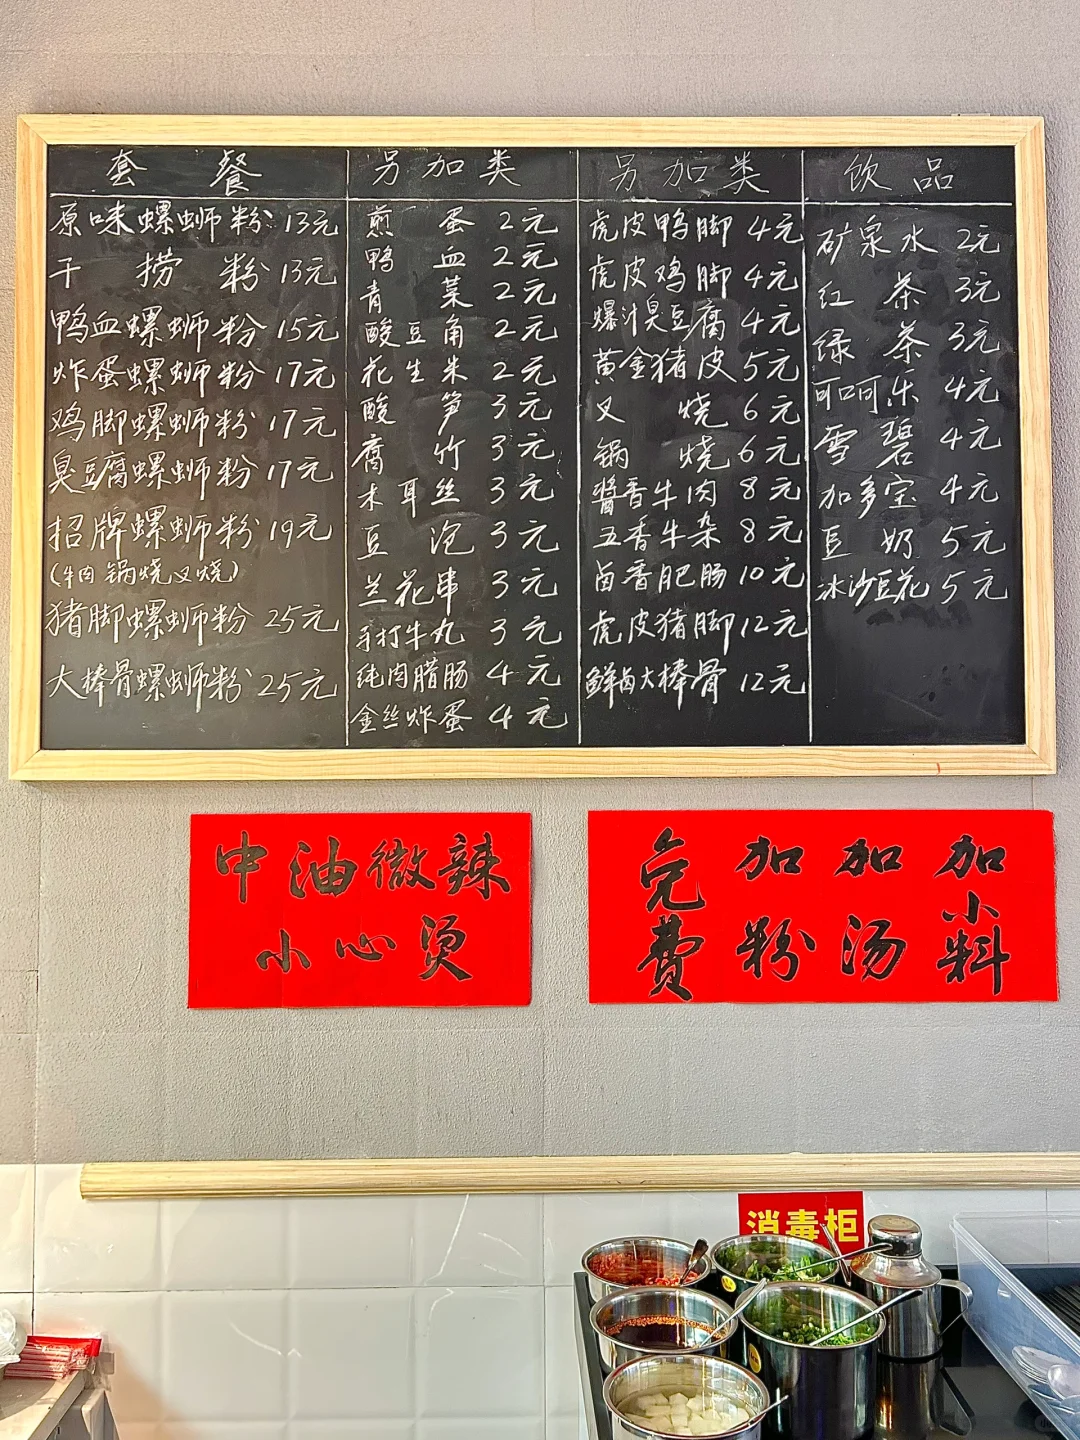 套餐
原味螺蛳粉 13元
干捞粉 13元
鸭血螺蛳粉 15元
炸蛋螺蛳粉 17元
鸡脚螺蛳粉 17元
臭豆腐螺蛳粉 17元
招牌螺蛳粉 19元
(牛肉 锅烧 叉烧)
猪脚螺蛳粉 25元
大棒骨螺蛳粉 25元
另加类
煎蛋 2元
鸭血 2元
青菜 2元
酸豆角 2元
花生米 2元
酸笋 3元
腐竹 3元
木耳丝 3元
豆泡 3元
兰花串 3元
手打牛丸 3元
纯肉腊肠 4元
金丝炸蛋 4元
另加类
虎皮鸭脚 4元
虎皮鸡脚 4元
爆汁臭豆腐 4元
黄金猪皮 5元
叉烧 6元
锅烧 6元
酱香牛肉 8元
五香牛杂 8元
卤香肥肠 10元
虎皮猪脚 12元
鲜卤大棒骨 12元
饮品
矿泉水 2元
红茶 3元
绿茶 3元
可口可乐 4元
雪碧 4元
加多宝 4元
豆奶 5元
冰沙豆花 5元
中油微辣
小心烫
免费
加粉
加汤
加小料
消毒柜